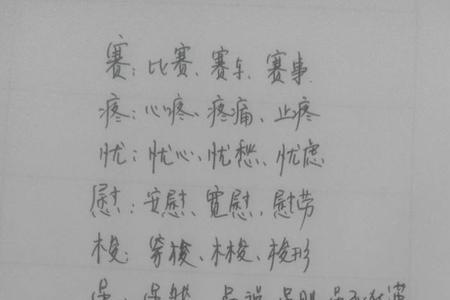 赛：比赛、赛车、赛事
疼：心疼、疼痛、止疼
忧：忧心、忧愁、忧虑
慰：安慰、宽慰、慰劳
梭：穿梭、木梭、梭形